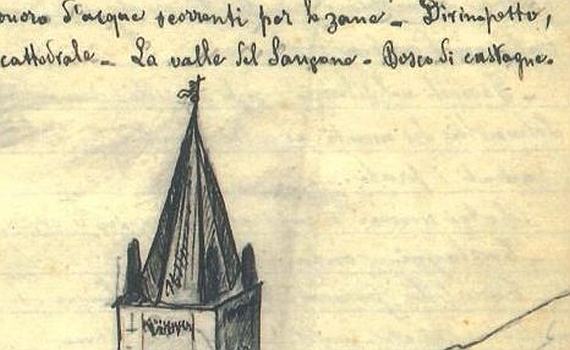 d'acque scorrenti per le zane – Dirimpetto,
cattedrale – La valle del Sangone – Bosco di castagne.